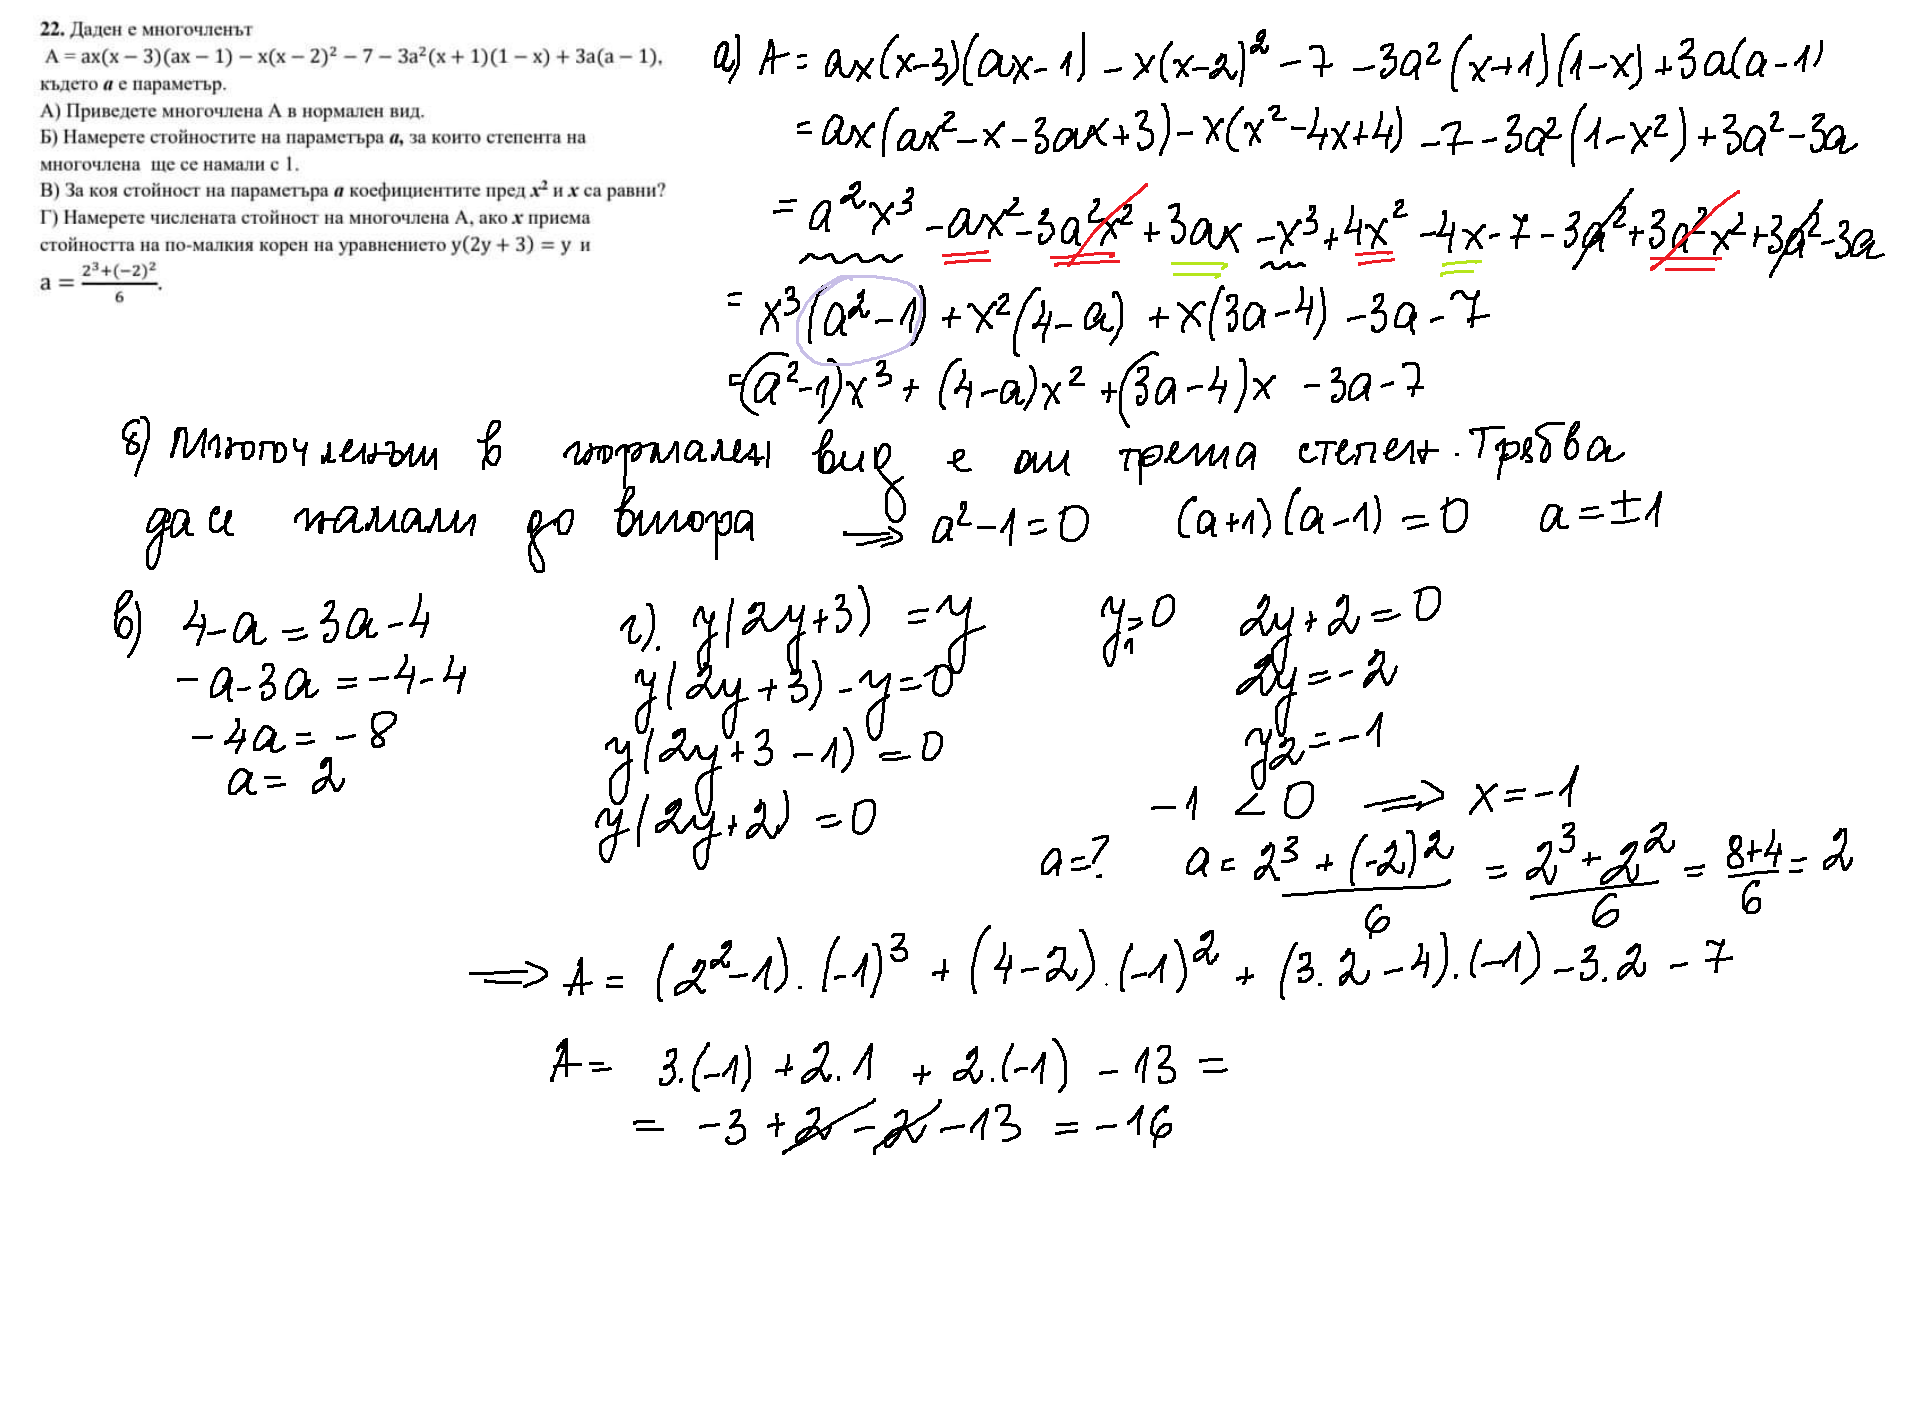 22. Даден е многочленът
A = ax(x − 3)(ax − 1) − x(x − 2)² − 7 − 3a²(x + 1)(1 − x) + 3a(a − 1),
където a е параметър.
А) Приведете многочлена А в нормален вид.
Б) Намерете стойностите на параметъра a, за които степента на
многочлена ще се намали с 1.
В) За коя стойност на параметъра a коефициентите пред x² и x са равни?
Г) Намерете числената стойност на многочлена А, ако x приема
стойността на по-малкия корен на уравнението y(2y + 3) = y и
a = (2³+(−2)²)/6.
а) A = ax(x-3)(ax-1) - x(x-2)² - 7 - 3a²(x+1)(1-x) + 3a(a-1)
= ax(ax² - x - 3ax + 3) - x(x² - 4x + 4) - 7 - 3a²(1-x²) + 3a² - 3a
= a²x³ - ax² - 3a²x² + 3ax - x³ + 4x² - 4x - 7 - 3a² + 3a²x² + 3a² - 3a
= x³(a²-1) + x²(4-a) + x(3a-4) - 3a - 7
= (a²-1)x³ + (4-a)x² + (3a-4)x - 3a - 7
б) Многочленът в нормален вид е от трета степен. Трябва
да се намали до втора ⟹ a²-1=0 (a+1)(a-1)=0 a=±1
в) 4-a = 3a-4
-a-3a = -4-4
-4a = -8
a = 2
г). y(2y+3) = y
y(2y+3) - y = 0
y(2y+3-1) = 0
y(2y+2) = 0
y₁=0 2y+2=0
2y = -2
y₂ = -1
-1 < 0 ⟹ x = -1
a=? a = (2³+(-2)²)/6 = (2³+2²)/6 = (8+4)/6 = 2
⟹ A = (2²-1).(-1)³ + (4-2).(-1)² + (3.2-4).(-1) - 3.2 - 7
A = 3.(-1) + 2.1 + 2.(-1) - 13 =
= -3 + 2 - 2 - 13 = -16